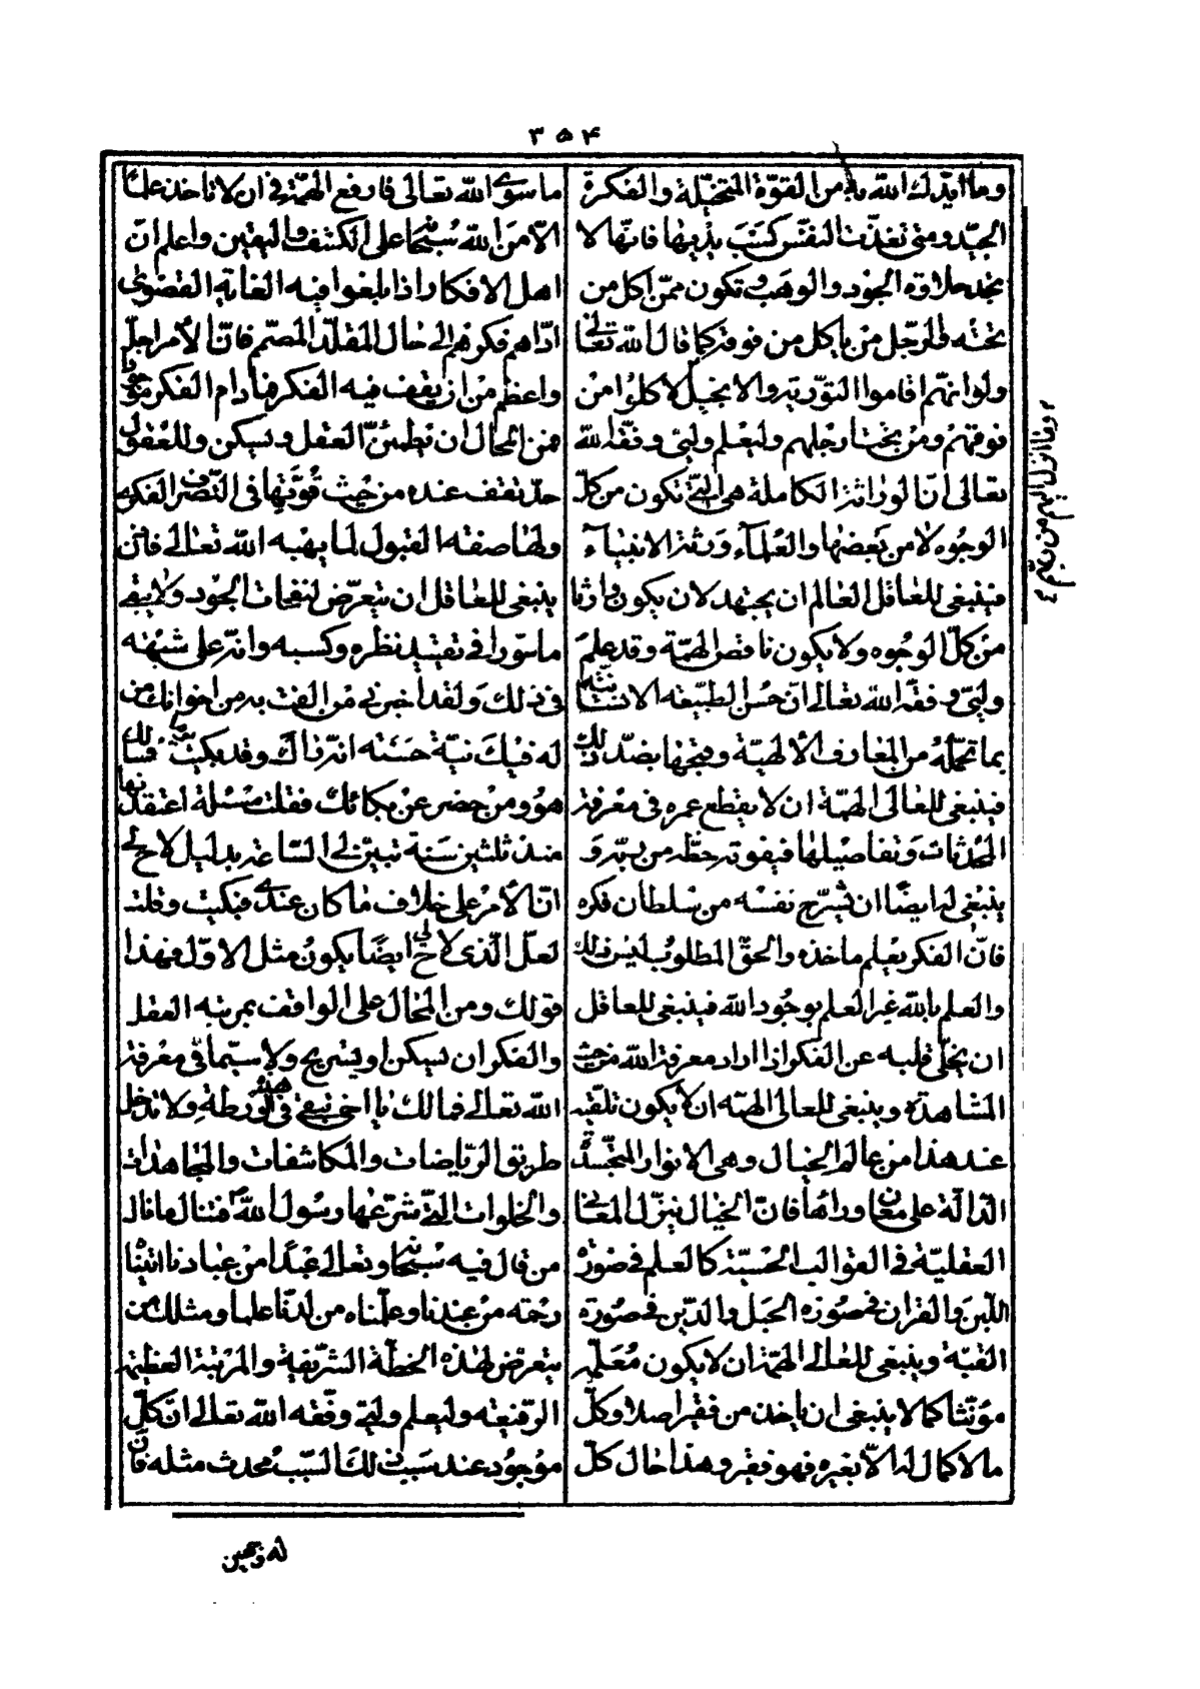 ٣٥۴
وما ايّدك الله به من القوّة المتخيّلة والفكرة
الجيّد ومتى تغذّت النفس كسب يديها فانّها لا
تجد حلاوة الجود والوهب وتكون ممّن اكل من
تحته والرّجل من ياكل من فوقه كما قال الله تعالى
ولو انهم اقاموا التوّرية والانجيل لاكلوا من
فوقهم ومن تحت ارجلهم وليعلم وليّى وفقه الله
تعالى انّ الوراثة الكاملة هى الّتى تكون من كلّ
الوجوه لا من بعضها والعلمآء ورثة الانبيآء
فينبغى للعاقل العالم ان يجتهد لان يكون وارثا
من كلّ الوجوه ولا يكون ناقص الهمّة وقد علم
وليّى وفقه الله تعالى انّ حسن الطبّيعة الانسانيّة
بما تحمّله من المعارف الالهيّة وقبحها بضدّ ذلك
فينبغى للعالى الهمّة ان لا يقطع عمره فى معرفة
المحدثات وتفاصيلها فيفوته حظّه من ربّه و
ينبغى له ايضًا ان يسّرح نفسه من سلطان فكره
فانّ الفكر يعلم ماخذه والحقّ المطلوب ليس ذلك
والعلم بالله غير العلم بوجود الله فينبغى للعاقل
ان يخلّى قلبه عن الفكر اذا اراد معرفة الله من حيث
المشاهدة وينبغى للعالى الهمّة ان لا يكون تلقيه
عند هذا من عالم الخيال وهى الانوار المتجسدّة
الدّالّة على معان وراءها فانّ الخيال ينزل المعانى
العقليّة فى القوالب الحسيّة كالعلم فى صورة
اللّبن والقران فى صورة الحبل والدّين فى صورة
القبة وينبغى للعالى الهمّة ان لا يكون معلّمه
مؤنّثا كما لا ينبغى ان ياخذ من فقير اصلا وكلّ
ما لا كمال له الاّ بغيره فهو فقير وهذا حال كلّ
ما سوى الله تعالى فارفع الهمّة فى ان لا تاخذ علمًا
الاّ من الله سبحانه على الكشف واليقين واعلم انّ
اهل الافكار اذا بلغوا فيه الغاية القصوى
ادّاهم فكرهم الى حال المقلّد المصمّم فانّ الأمر اجلّ
واعظم من ان يقف فيه الفكر فما دام الفكر موجودا
فمن المحال ان تطمئنّ العقل ويسكن وللعقول
حدّ تقف عنده من حيث قوّتها فى التّصرف الفكرى
ولها صفة القبول لما يهبه الله تعالى فاذن
ينبغى للعاقل ان يتعرّض لنفحات الجود ولا يبقى
ماسورا فى تقييد نظره وكسبه وانّه على شبهة
فى ذلك ولقد اخبرنى من الفت به من اخوانك من
له فيك نيّة حسنة انّه راك وقد بكيت يوما فسالك
هو ومن حضر عن بكائك فقلت مسئلة اعتقدتها
منذ ثلثين سنة تبيّن لى الساعة بدليل لاح لى
انّ الأمر على خلاف ما كان عندى فبكيت وقلت
لعلّ الّذى لاح لى ايضًا يكون مثل الاوّل فهذا
قولك ومن المحال على الواقف بمرتبة العقل
والفكر ان يسكن او يستريح ولا سيّما فى معرفة
الله تعالى فما لك يا اخى تبقى فى هذه الورطة ولا تدخل
طريق الرّياضات والمكاشفات والمجاهدات
والخلوات الّتى شرعها رسول الله فتنال ما نال
من قال فيه سبحانه وتعالى عبدًا من عبادنا اتيناه
رحمة من عندنا وعلّمناه من لدنّا علما ومثلك من
يتعرّض لهذه الخطّة الشّريفة والمرتبة العظيمة
الرّفيعة وليعلم وليّى وفّقه الله تعالى انّ كلّ
موجود عند سبب ذلك السّبب محدث مثله فانّ
وما انزل اليهم من ربهم
له وجهين